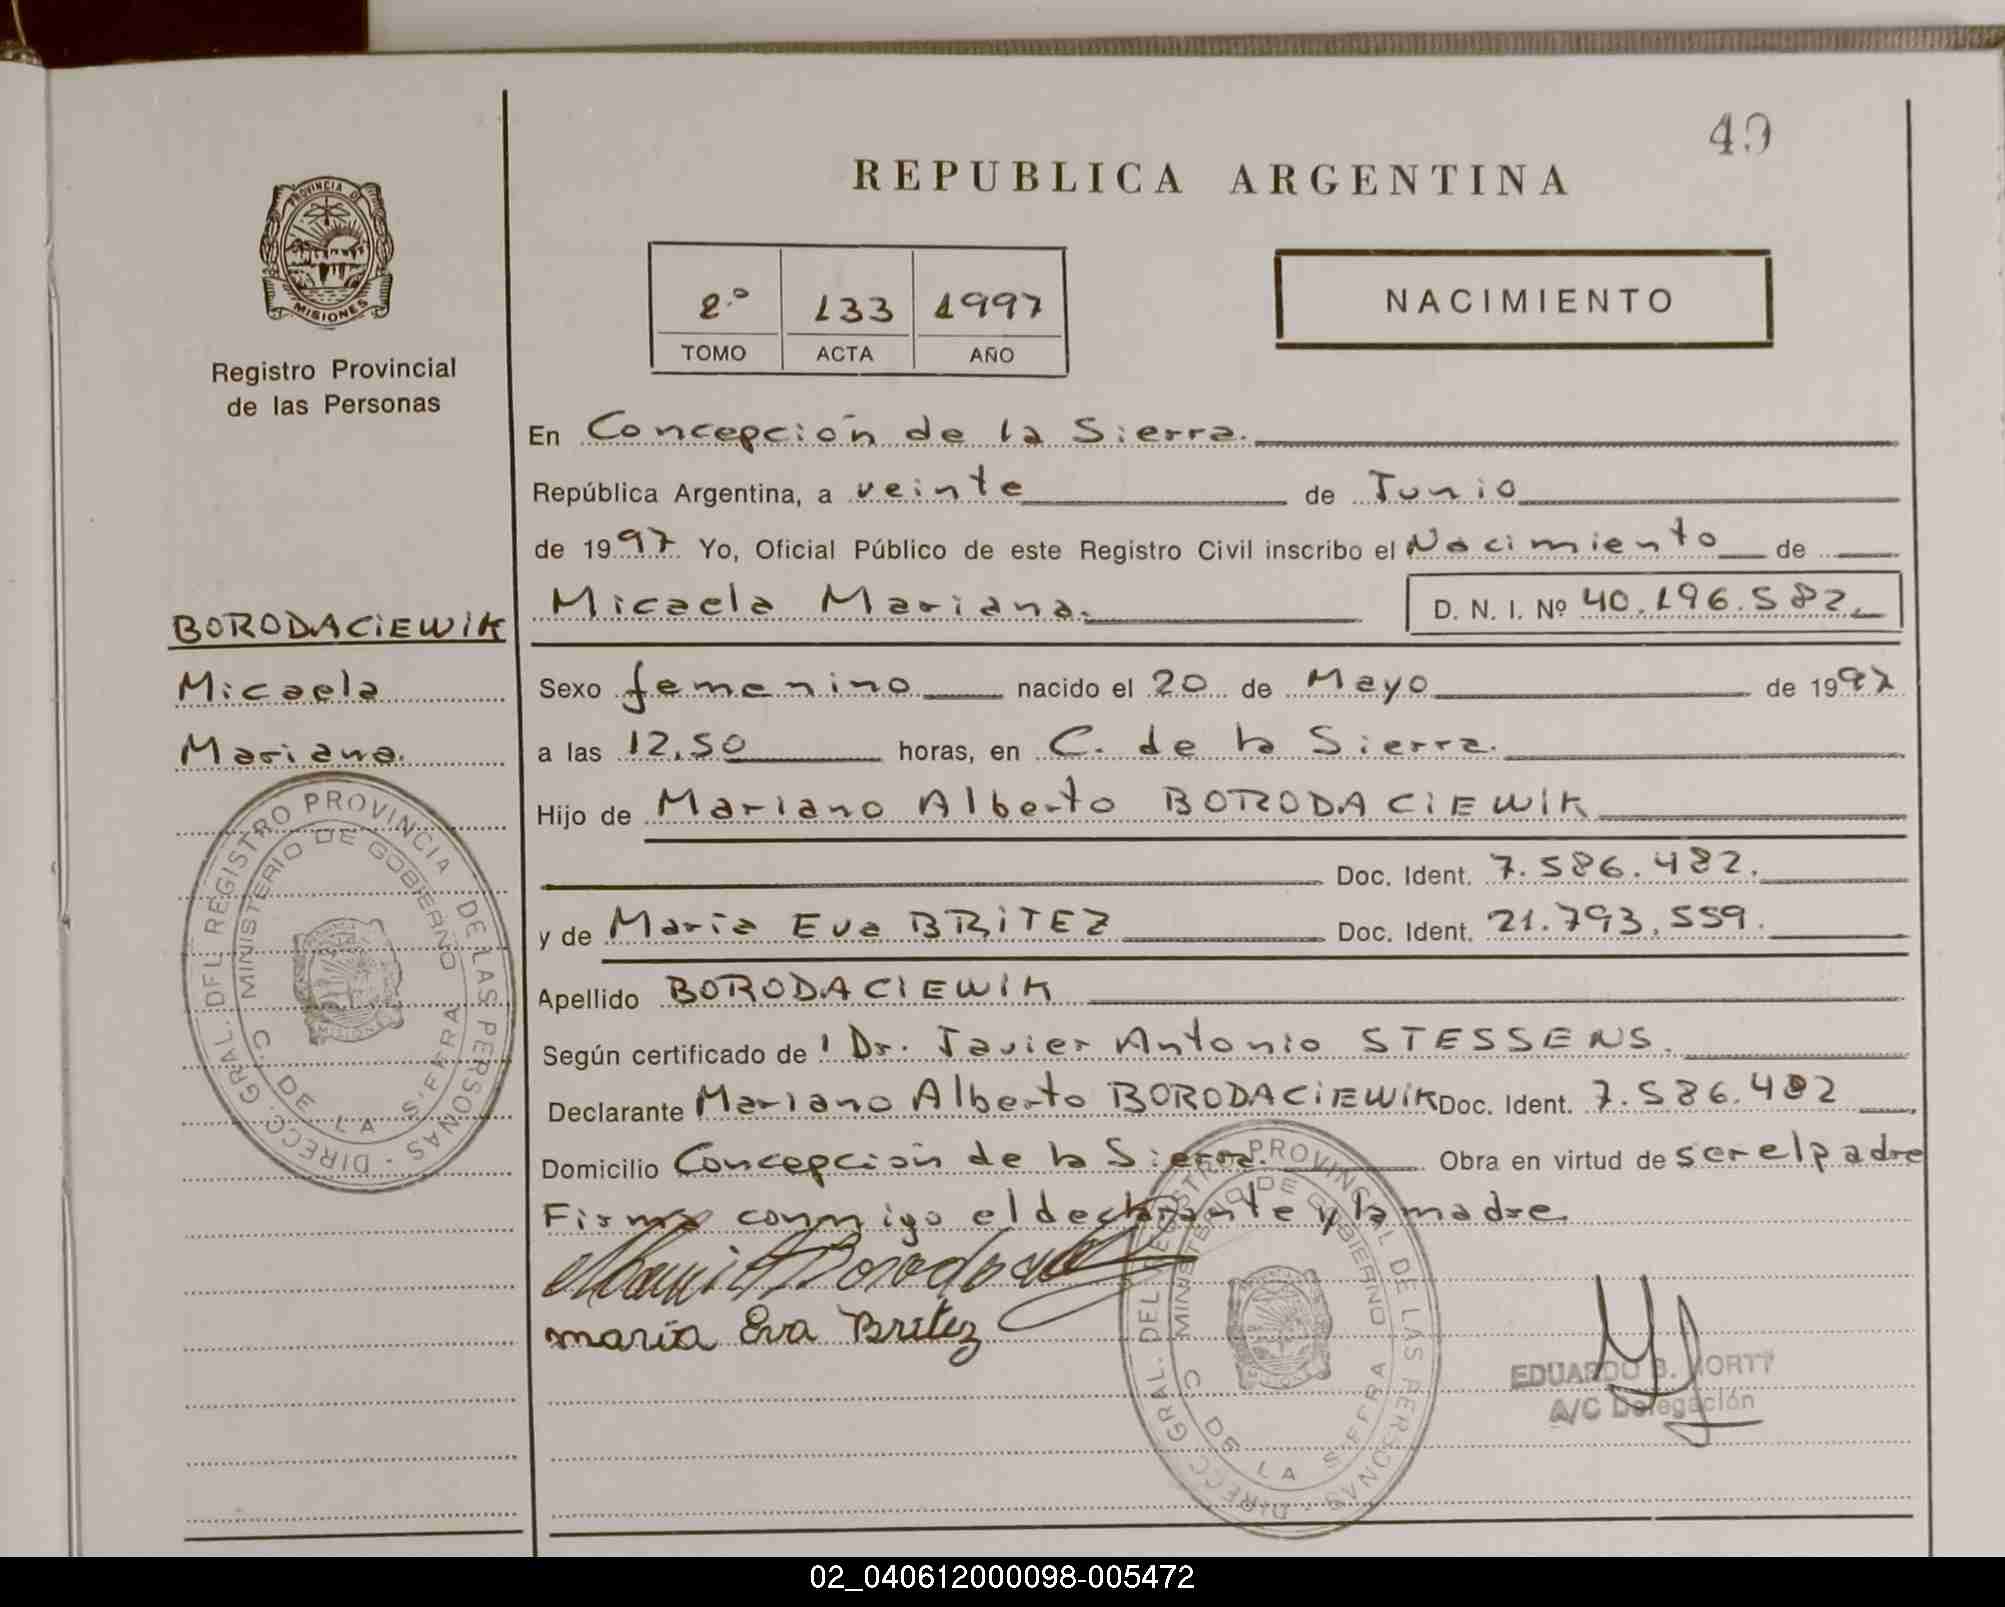 49
REPUBLICA ARGENTINA
PROVINCIA DE
MISIONES
Registro Provincial
de las Personas
2.º 133 1997
TOMO ACTA AÑO
NACIMIENTO
En Concepción de la Sierra.
República Argentina, a veinte de Junio
de 1997 Yo, Oficial Público de este Registro Civil inscribo el Nacimiento de
Micaela Mariana. D. N. I. Nº 40.196.582
BORODACIEWIK
Micaela
Mariana.
Sexo femenino nacido el 20 de Mayo de 1997
a las 12,50 horas, en C. de la Sierra.
Hijo de Mariano Alberto BORODACIEWIK
Doc. Ident. 7.586.482.
y de Maria Eva BRITEZ Doc. Ident. 21.793.559.
Apellido BORODACIEWIK
Según certificado de Dr. Javier Antonio STESSENS.
Declarante Mariano Alberto BORODACIEWIK Doc. Ident. 7.586.482
Domicilio Concepción de la Sierra. Obra en virtud de ser el padre
Firma conmigo el declarante y la madre.
maria Eva Britez
DIRECC. GRAL. DEL REGISTRO PROVINCIAL DE LAS PERSONAS
MINISTERIO DE GOBIERNO
C. DE LA SIERRA
MISIONES
DIRECC. GRAL. DEL REGISTRO PROVINCIAL DE LAS PERSONAS
MINISTERIO DE GOBIERNO
C. DE LA SIERRA
EDUARDO B.
A/C Delegación
02_040612000098-005472